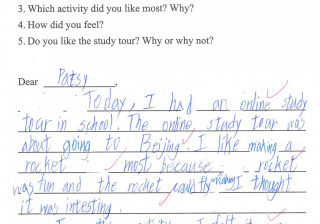 3. Which activity did you like most? Why?
4. How did you feel?
5. Do you like the study tour? Why or why not?
Dear Patsy,
Today, I had an online study
tour in school. The online study tour was
about going to Beijing. I like making a
rocket most because rocket
was fun and the rocket I thought
it was intesting.